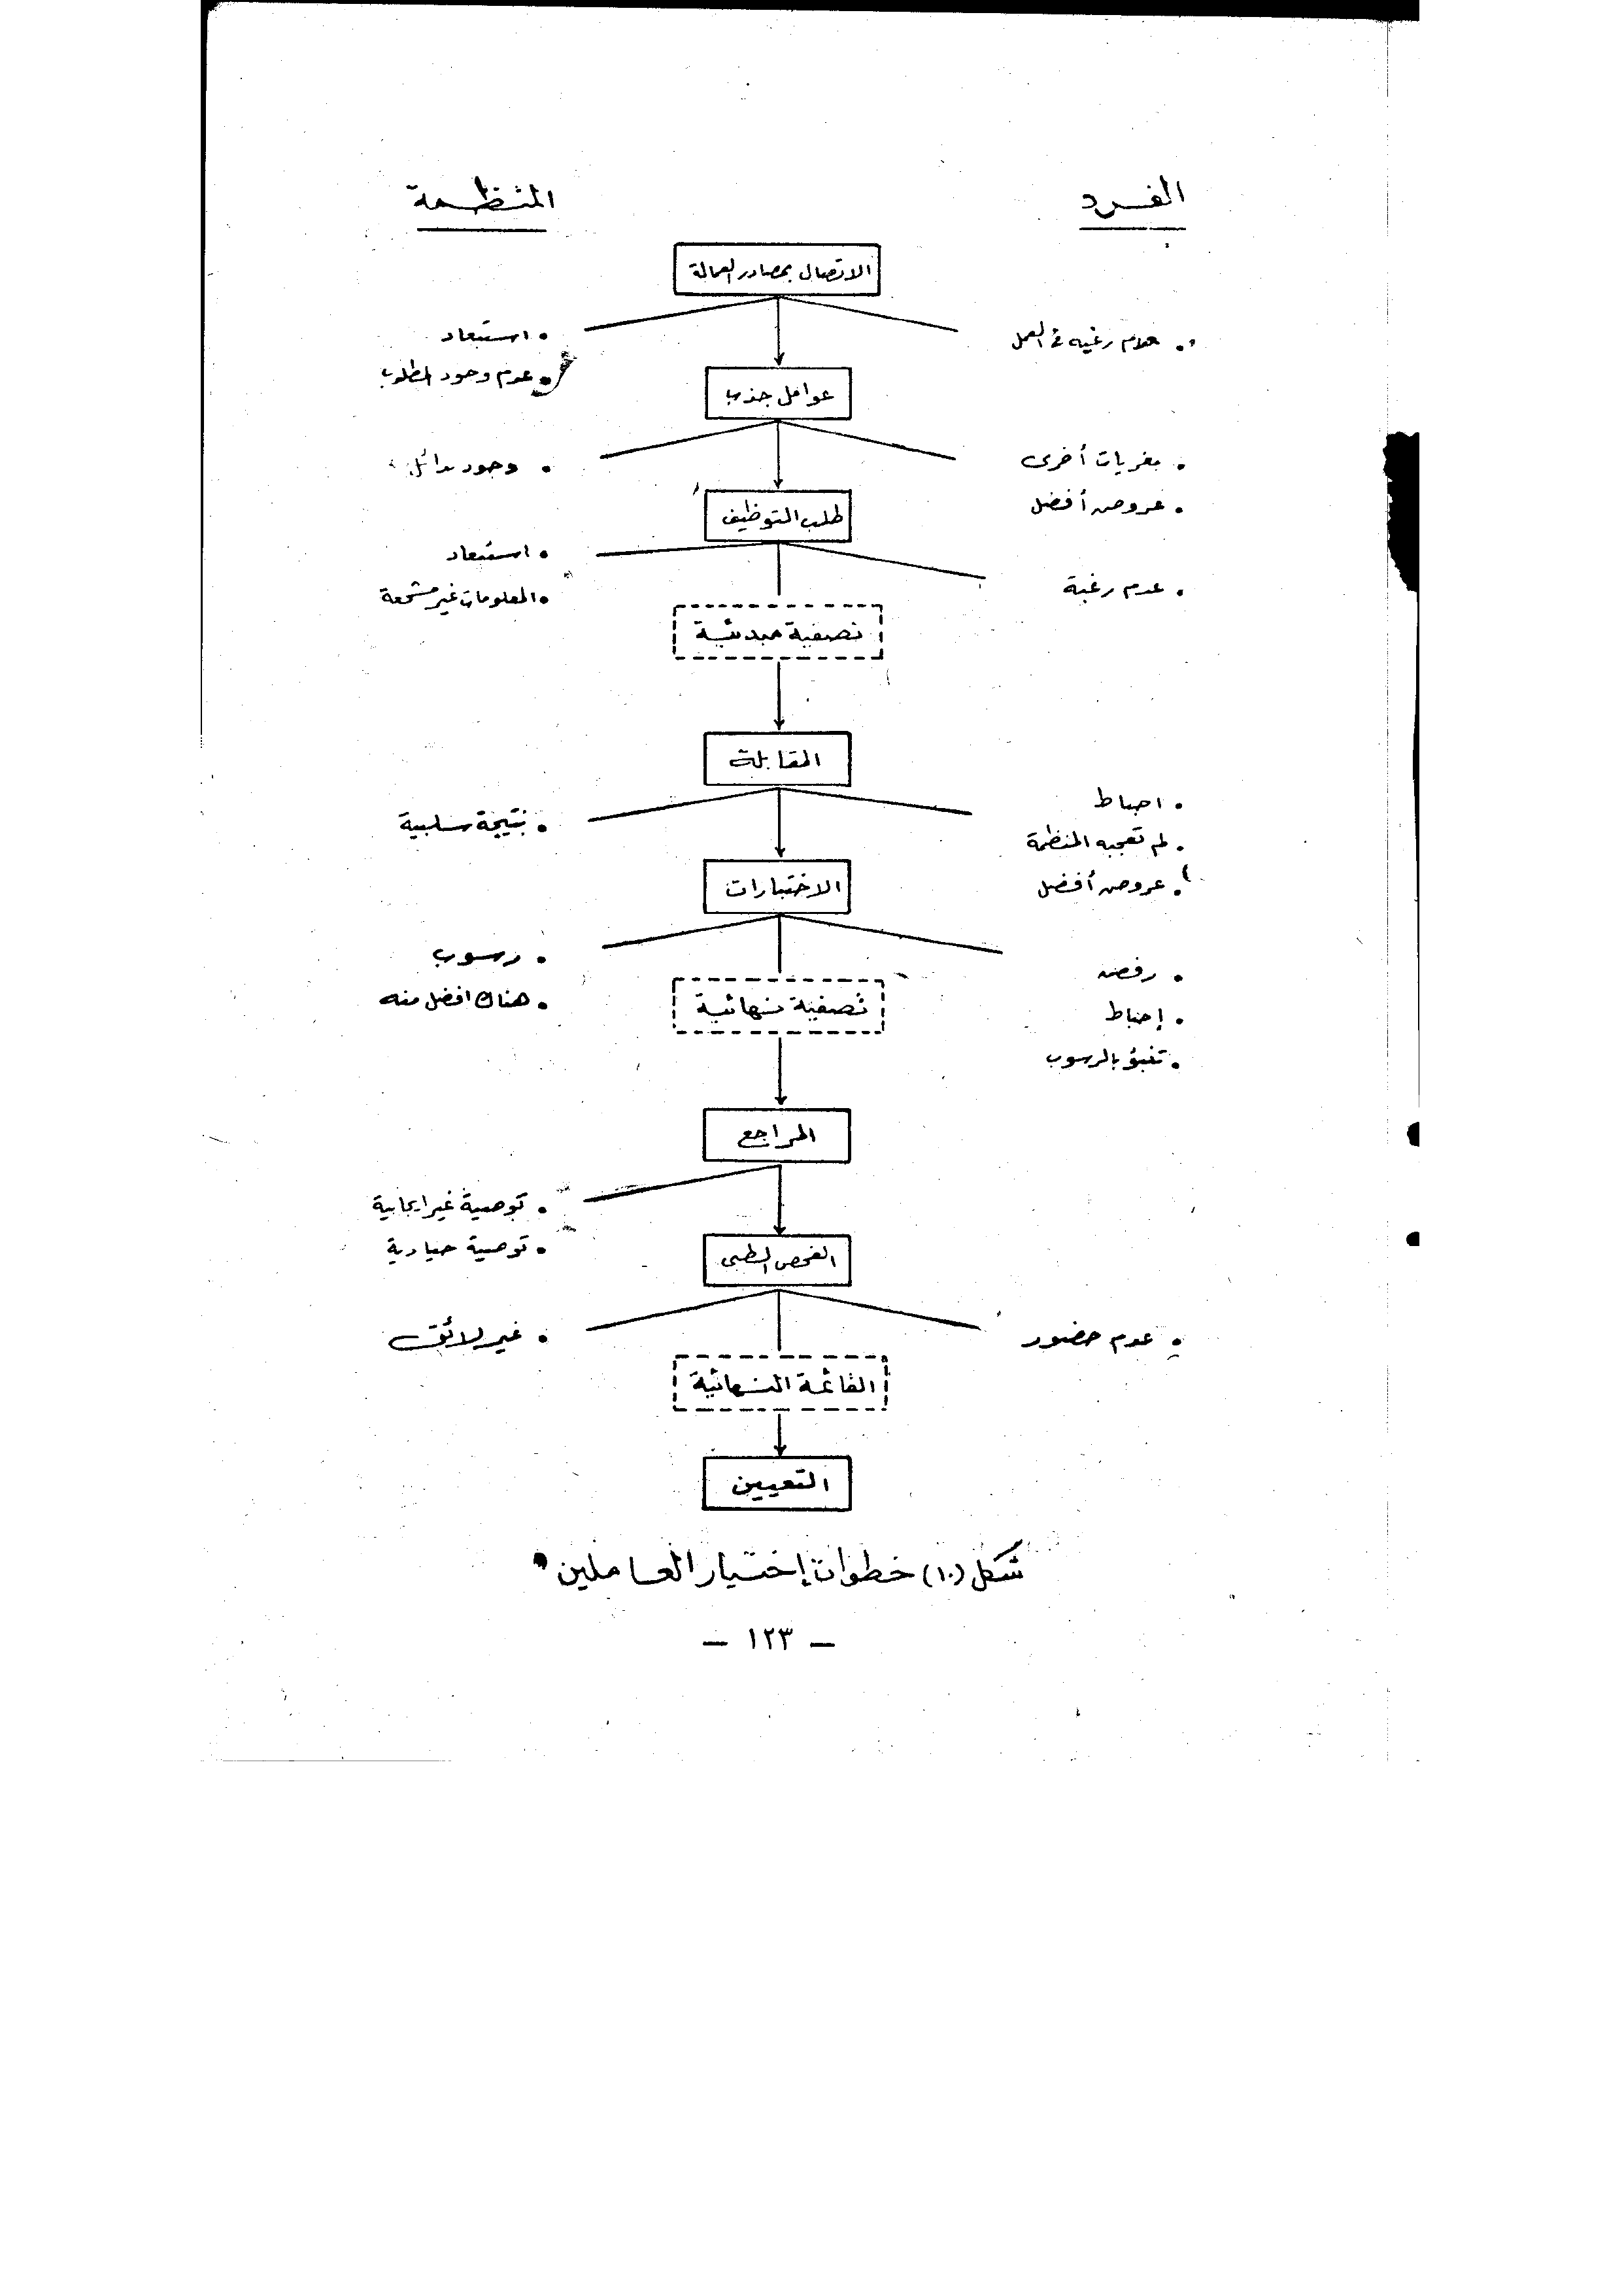 الفرد
المنظمة
الاتصال بمصادر العمالة
• عدم رغبه فى العمل
• استبعاد
• عدم وجود المطلوب
عوامل جذب
• مغريات أخرى
• عروض أفضل
• وجود بدائل
طلب التوظيف
• عدم رغبة
• استبعاد
• المعلومات غير مشجعة
تصفية مبدئية
المقابلة
• احباط
• لم تعجبه المنظمة
• عروض أفضل
• نتيجة سلبية
الاختبارات
• رفض
• إحباط
• تنبؤ بالرسوب
• رسوب
• هناك افضل منه
تصفية نهائية
المراجع
• توصية غير ايجابية
• توصية حيادية
الفحص الطبى
• عدم حضور
• غير لائق
القائمة النهائية
التعيين
شكل (١٠) خطوات إختيار العاملين •
— ١٢٣ —